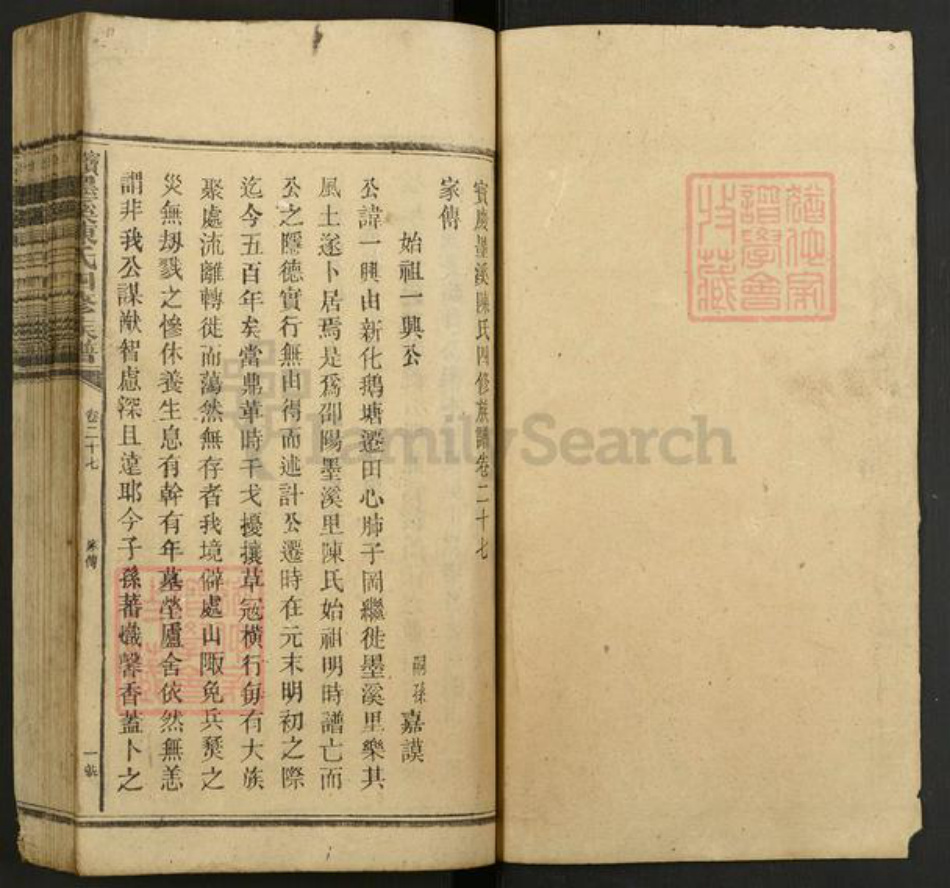 寶慶墨溪陳氏四修族譜卷二十七
家傳
始祖一興公
嗣孫嘉謨
公諱一興由新化鵝塘遷田心肺子岡繼徙墨溪里樂其
風土遂卜居焉是爲邵陽墨溪里陳氏始祖明時譜亡而
公之隱德實行無由得而述計公遷時在元末明初之際
迄今五百年矣當鼎革時干戈擾攘草寇橫行每有大族
聚處流離轉徙而蕩然無存者我境僻處山陬免兵燹之
災無刼戮之慘休養生息有幹有年墓塋廬舍依然無恙
謂非我公謀猷智慮深且遠耶今子孫蕃熾馨香蓋卜之
寶墨溪陳氏四修族譜
卷二十七
家傳
一張
譜學會
收藏
FamilySearch